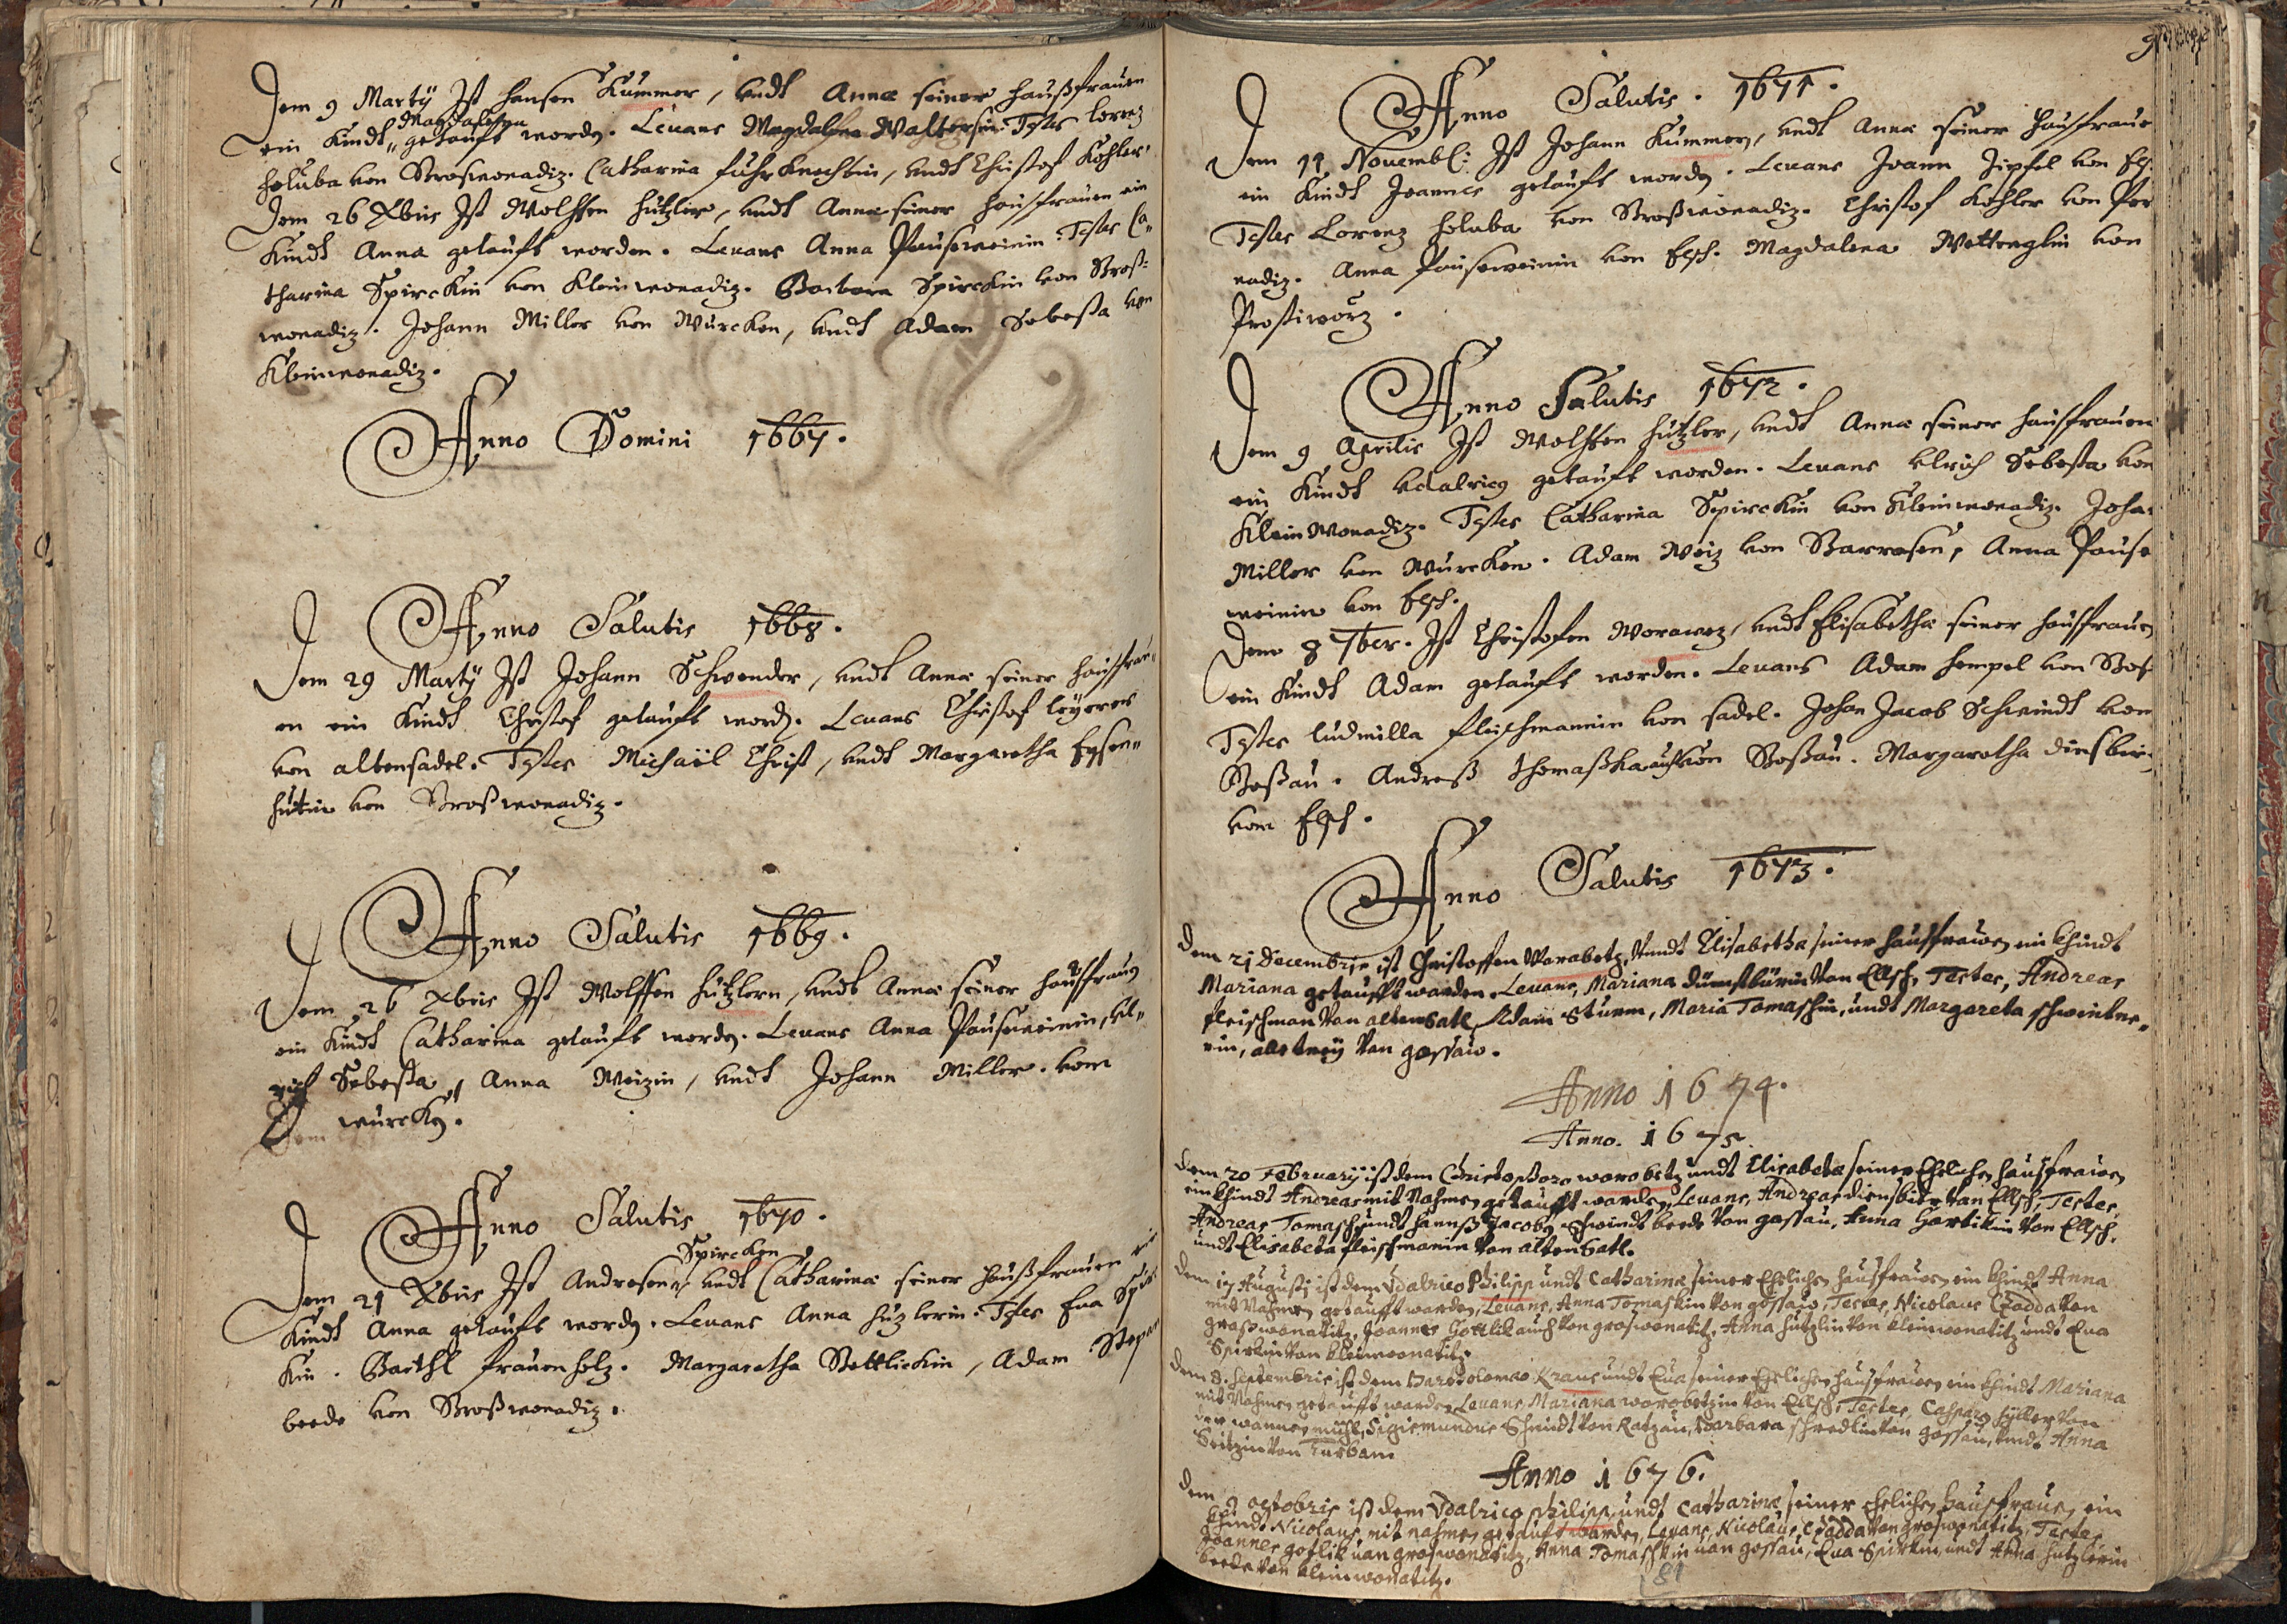 Dem 9 Martÿ Ist Hansen Kummer, undt Annæ seiner haußfrauen
ein Kindt Magdalena getauft wordn. Levans Magdalena Waltersin. Testes Lorenz
Holuba von Großwonadiz. Catharina Fuhrknechtin, undt Christof Kohler.
Dem 26 Xbris Ist Wolffen Hützler, undt Annæ seiner hausfrauen ein
Kindt Anna getauft worden. Levans Anna Pauseweinin. Testes Ca„
tharina Spirckin von Kleinwonadiz. Barbara Spirckin von Groß=
wonadiz. Johann Miller von Wurcken, undt Adam Sebesta von
Kleinwonadiz.
Anno Domini 1667.
Anno Salutis 1668.
Dem 29 Martÿ Ist Johann Schwender, undt Annæ seiner hausfrau„
en ein Kindt Christof getauft wordn. Levans Christof
von altensadel. Testes Michaël Christ, undt Margaretha Eysen„
hutin von Großwonadiz.
Anno Salutis 1669.
Dem 26 Xbris Ist Wolffen Hützlern, undt Annæ seiner hausfrauen
ein Kindt Catharina getauft wordn. Levans Anna Pauseweinin, Ul„
rich Sebesta, Anna Weizin, undt Johann Miller. vom
wurckn.
Anno Salutis 1670.
Dem 21 Xbris Ist Andresen Spircken undt Catharinæ seiner haußfrauen ein
Kindt Anna getauft wordn. Levans Anna Huzlerin. Testes Eva Spir
Kin. Barthl Frauenholz. Margaretha Gottlickin, Adam
beede von Großwonadiz.
Anno Salutis. 1671.
Dem 11 Novembr: Ist Johann Kummer, undt Annæ seiner hausfraue
ein Kindt Joannes getauft wordn. Levans Joann Zipfel von Elsch.
Testes Lorenz Holuba von Großwonadiz. Christof Kohler von Per
nadiz. Anna Pauseweinin von Elsch. Magdalena Wettenglin von
Prostiworz.
Anno Salutis 1672.
Dem 9 Aprilis Ist Wolffen Hützler, undt Annæ seiner hausfrauen
ein Kindt Udalricus getauft worden. Levans Ulrich Sebesta von
KleinWonadiz. Testes Catharina Spirckin von Kleinwonadiz. Joha=
Miller von Wurcken. Adam Weiz von Darrasen, Anna Pause
weinin von Elsch.
Dem 8 7ber. Ist Christofen Worawez, undt Elisabethæ seiner hausfrauen
ein Kindt Adam getauft worden. Levans Adam Hempel von
Testes Ludmilla Fleischmanin von sadel. Johan Jacob Schwindt von
Goßau. Andreß Thomaschka auch von Goßau. Margaretha Dinsbier
vom Elsch.
Anno Salutis 1673.
Dem 21 Decembris ist Christoffen Warabetz, Vundt Elisabetha seiner haussfrawen ein khindt
Mariana getaufft warden. Levans, Mariana Dünstbürin Van Ellsch, Testes, Andreas
fleischman Van altensatl, Adam Sturm, Maria Tomaschin, undt Margareta schwintne„
rin, alle treÿ Van gossaw.
Anno 1674.
Anno. 1675
Dem 20 Februarÿ ist dem Christophoro worobetz undt Elisabeta seiner Ehelichen haussfrawen
ein khindt Andreas mit Nahmen getaufft warden, Levans, Andreas diensbier Van Ellsch, Testes,
Andreas Tomasch, undt hannß Jacob Schwindt beede Van gossau, Anna Hartikin Van Ellsch,
undt Elisabeta fleischmanin Van altensatl.
Dem 17 Augusti ist dem Vdalrico Philipp undt Catharinæ seiner Ehelichen haussfrawen ein khindt Anna
mit Nahmen getaufft warden, Levans, Anna Tomaskin Van gossaw, Testes, Nicolaus Czadda Von
groswonatitz, Joannes Gottlik auch Von groswonatitz, Anna hutzlin Von kleinwonatitz undt Eva
Spirkin Von kleinwonatitz.
Dem 8. Septembris ist dem Bartolomæo Kraus undt Eva seiner Ehelichen haussfrawen ein khindt Mariana
mit Nahmen getaufft warden, Levans, Mariana worobetzin Von Ellsch, Testes, Casparus hÿller Von
der wannen mühl, Sigismundus Schmidt Von Ratzau, Barbara schredlin Von gossau, undt Anna
Seitzin Von Turban
Anno 1676.
Dem 9 octobris ist dem Vdalrico Philipp undt Catharinæ seiner ehelichen haussfrauen ein
khindt Nicolaus mit nahmen getauft warden, Levans, Nicolaus Czadda Von groswonatitz, Testes
Joannes gotlik uan groswonatitz, Anna Tomaschkin uan gossau, Eva Spirkin, undt Anna hutzlerin
beede Von kleinwonatitz.
81